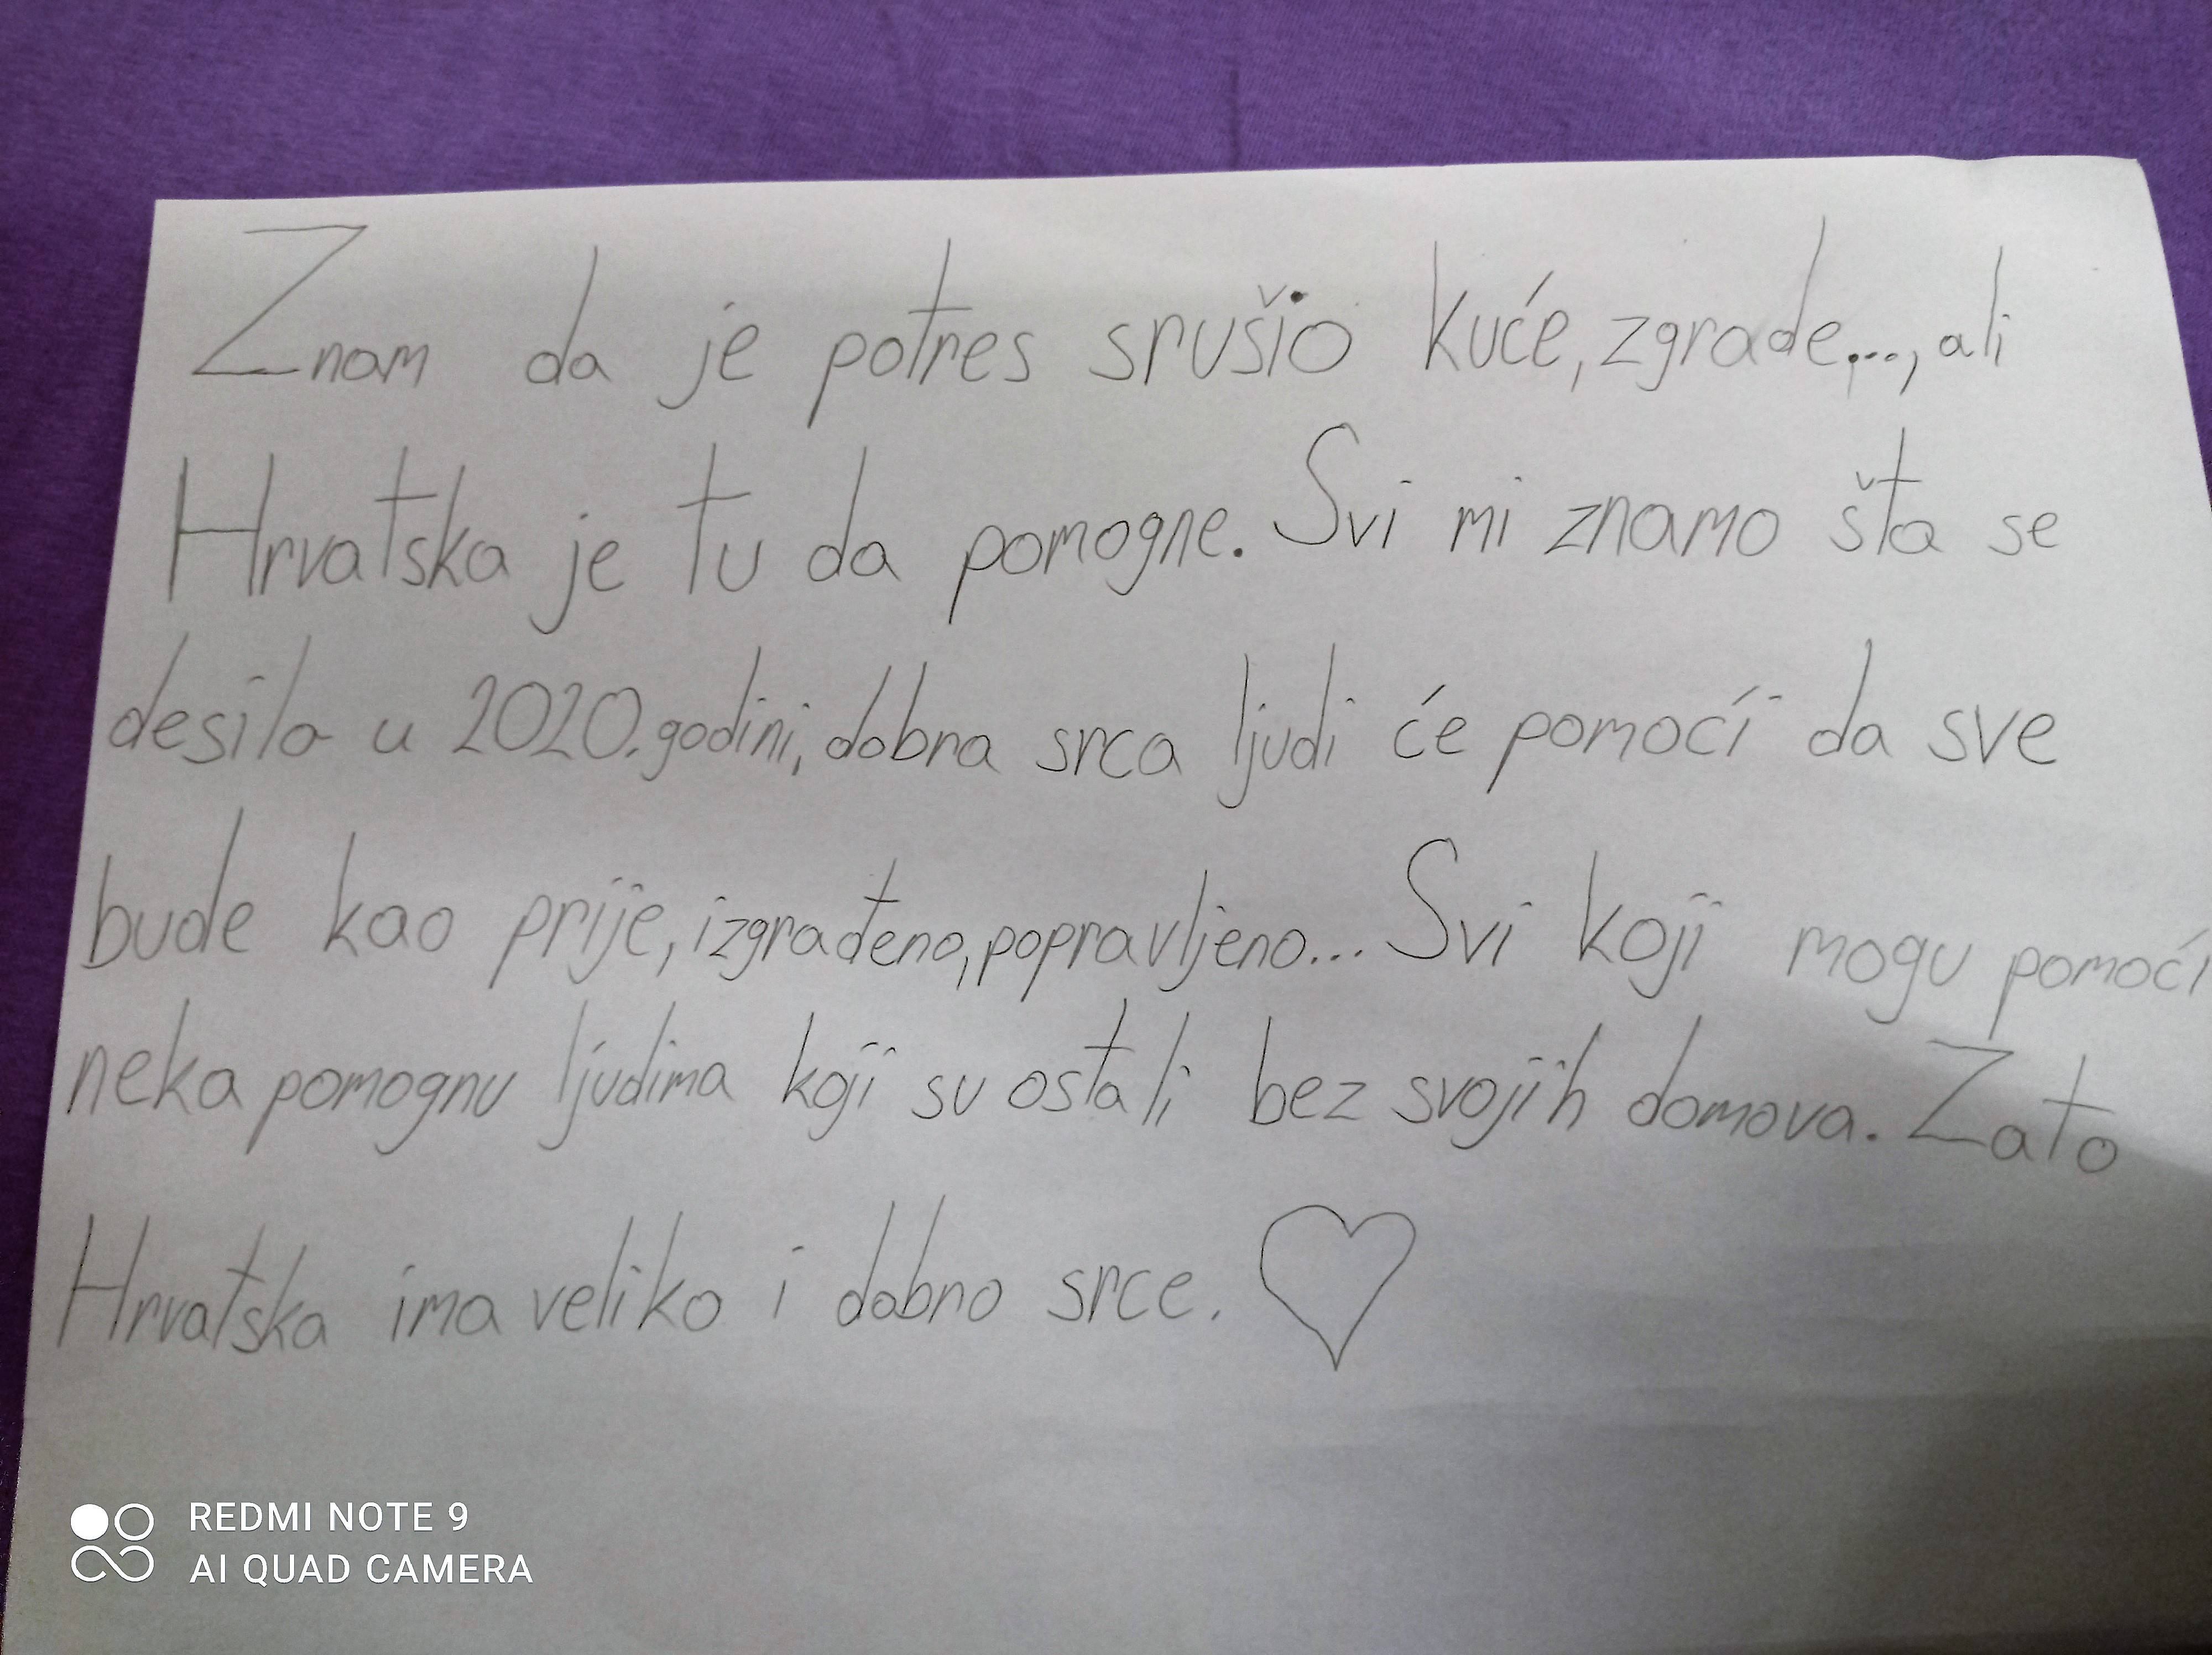 Znam da je potres srušio kuće, zgrade..., ali
Hrvatska je tu da pomogne. Svi mi znamo šta se
desilo u 2020. godini, dobra srca ljudi će pomoći da sve
bude kao prije, izgrađeno, popravljeno... Svi koji mogu pomoći
neka pomognu ljudima koji su ostali bez svojih domova. Zato
Hrvatska ima veliko i dobro srce.
REDMI NOTE 9
AI QUAD CAMERA